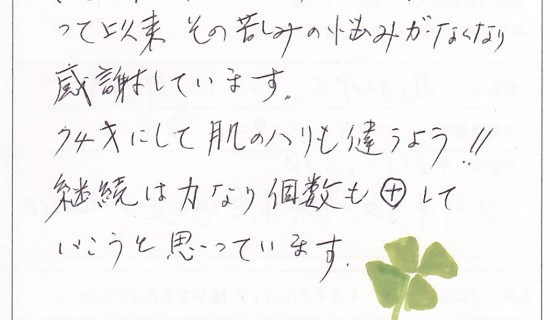 って以来 その苦しみの悩みがなくなり
感謝しています。
ウチきにして肌のハリも違うよう!!
継続は力なり個数も⊕して
いこうと思っています。